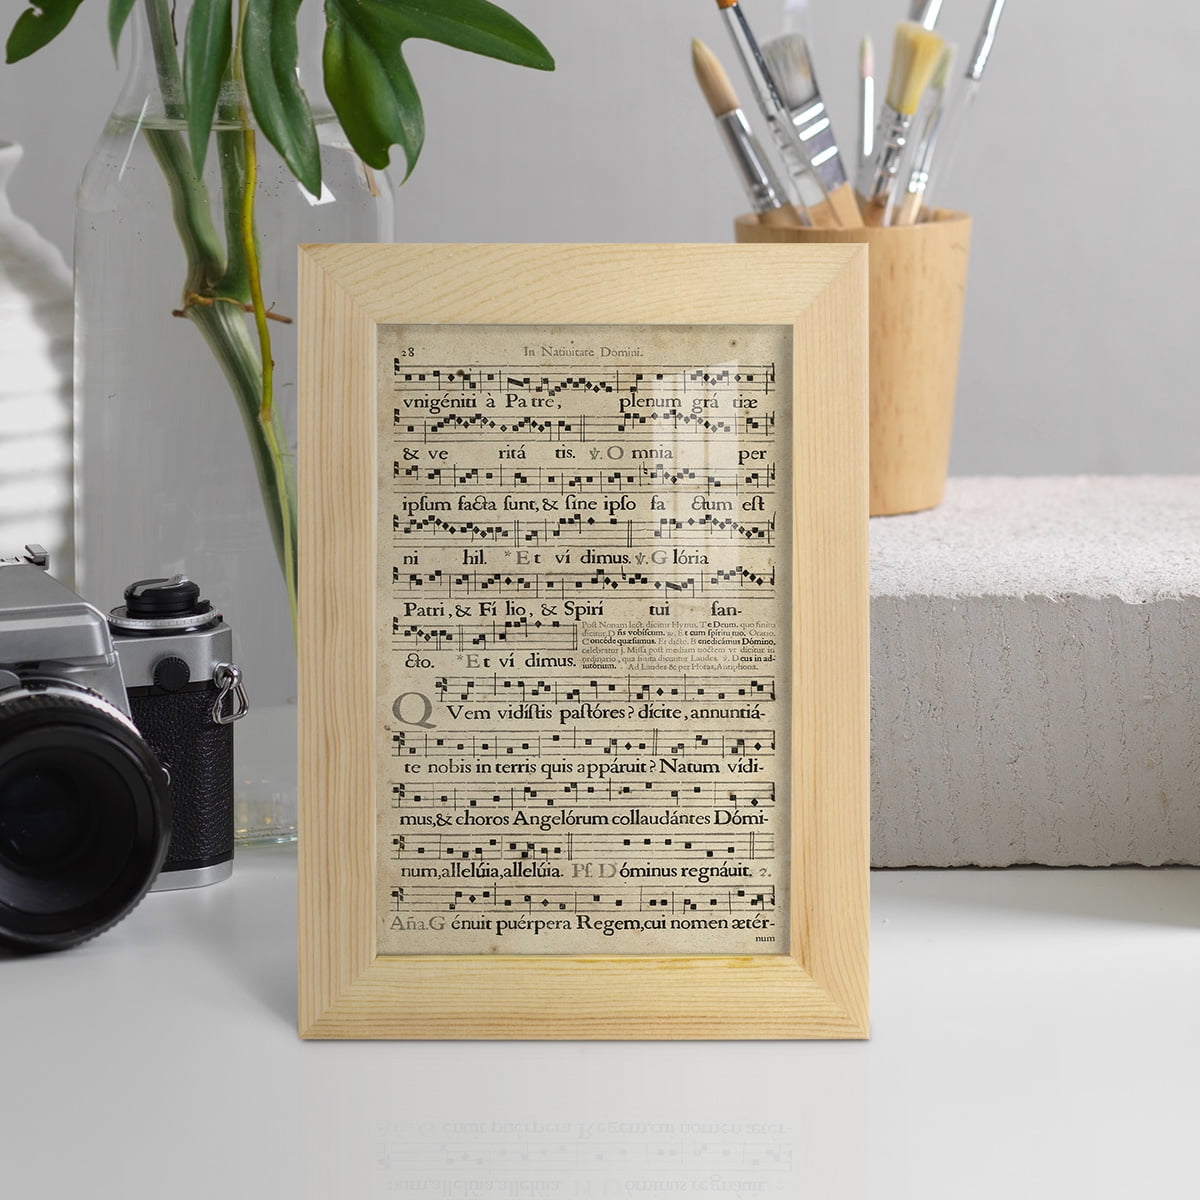 28 In Natiuitate Domini.
vnigéniti à Patre, plenum grá tiæ
& ve ritá tis. ℣. O mnia per
ipſum facta ſunt, & ſine ipſo fa ctum eſt
ni hil. *Et ví dimus. ℣. G lória
Patri, & Fí lio, & Spirí tui ſan-
cto. *Et ví dimus.
Poſt Nonam lect. dicitur Hymn. Te Deum. quo finito
dicitur. Dñs vobiſcum. ℟. Et cum ſpiritu tuo. Oratio.
Concéde quæſumus. Et dicto. Benedicámus Dómino,
celebratur j. Miſſa poſt mediam noctem vt dicitur in
ordinario, qua finita dicuntur Laudes. ℣. Deus in ad-
iutórium. Ad Laudes & per Horas, Antiphona.
QVem vidíſtis paſtóres? dícite, annuntiá-
te nobis in terris quis appáruit? Natum vídi-
mus, & choros Angelórum collaudántes Dómi-
num, allelúia, allelúia. Pſ. Dóminus regnáuit. 2.
Aña. Génuit puérpera Regem, cui nomen ætér-
num